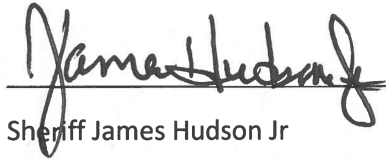 James Hudson Jr
Sheriff James Hudson Jr